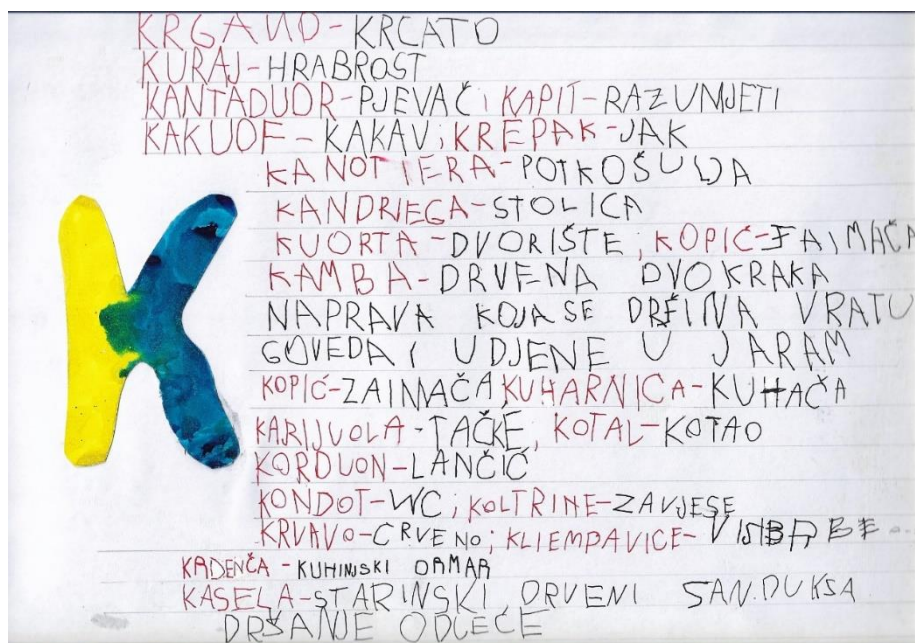 KRGANO-KRCATO
KURAJ-HRABROST
KANTADUOR-PJEVAČ; KAPIT-RAZUMJETI
KAKUOF-KAKAV; KREPAK-JAK
KANOTTERA-POTKOŠULJA
KANDRIEGA-STOLICA
KUORTA-DVORIŠTE; KOPIĆ-ZAIMAČA
KAMBA-DRVENA DVOKRAKA
NAPRAVA KOJA SE NA VRATU
GOVEDA I UDJENE U JARAM
KOPIĆ-ZAIMAČA KUHARNICA-KUHAČA
KARIJUOLA-TAČKE; KOTAL-KOTAO
KORDUON-LANČIĆ
KONDOT-WC; KOLTRINE-ZAVJESE
KRVAVO-CRVENO; KLIEMPAVICE-
KRDENČA-KUHINJSKI ORMAR
KASELA-STARINSKI DRVENI SANDUK SA
DRŠANJE ODLEĆE
K